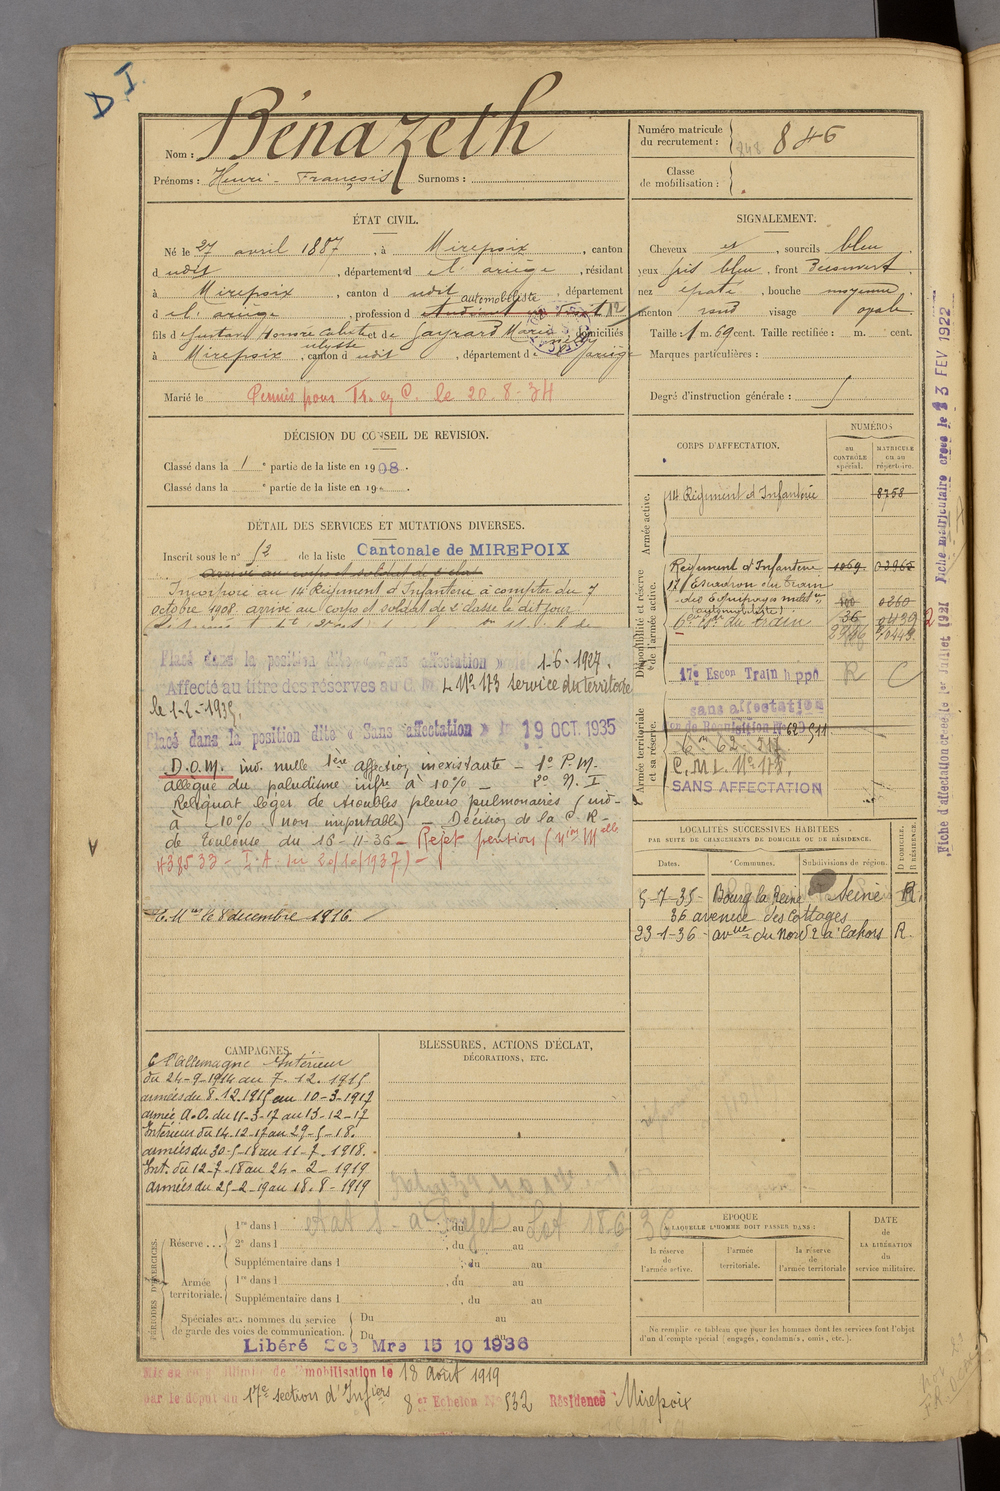 D I.
Nom : Bénazeth
Prénoms : Henri - François Surnoms :
Numéro matricule
du recrutement : 848 846
Classe
de mobilisation :
ÉTAT CIVIL.
Né le 27 avril 1887, à Mirepoix, canton
d udit, département d e l'ariège, résidant
à Mirepoix, canton d udit, département
automobiliste
d e l'ariège, profession d
fils d Gustave Honoré et de Gayrard Marie domiciliés
ulysse
à Mirepoix, canton d udit, département d ariège
Marié le Permis pour Tr. ez C. le 20-8-34
SIGNALEMENT.
Cheveux et, sourcils bleu
yeux gris bleu, front Découvert
nez épaté, bouche moyenne
menton rond visage opale
Taille : 1 m. 69 cent. Taille rectifiée : m. cent.
Marques particulières :
Degré d'instruction générale :
DÉCISION DU CONSEIL DE REVISION.
Classé dans la 1e partie de la liste en 1908.
Classé dans la e partie de la liste en 19
DÉTAIL DES SERVICES ET MUTATIONS DIVERSES.
Inscrit sous le n° 52 de la liste Cantonale de MIREPOIX
arrivé au corps et soldat de 2e classe
Incorporé au 14 Régiment d'Infanterie à compter du 7
octobre 1908. arrivé au Corps et soldat de 2e classe le dit jour
Placé dans la position dite « Sans affectation » 1-6-1927.
Affecté au titre des réserves au C. M. L N° 173 service du territoire
le 1-2-1935.
Placé dans la position dite « Sans affectation » le 19 OCT. 1935
D.O.M. ind. nulle 1ère affection inexistante - 1° P.M.
allègue du paludisme infre à 10% - 2° N. I
Reliquat léger de troubles pleuro pulmonaires (ind-
à - 10% non imputable) - Décision de la C. R-
de Toulouse du 16-11-36 - Rejet pension (
438533 - I.A du 20/10/1937) -
le 8 décembre 1916.
CORPS D'AFFECTATION.
NUMÉROS
au
CONTRÔLE
spécial.
MATRICULE
ou au
répertoire.
Armée active.
14 Régiment d'Infanterie 8758
Disponibilité et réserve
de l'armée active.
Régiment d'Infanterie 1069
17e Escadron du Train
des Equipages milres
(automobiliste) 100 0260
du train 36 0439
17e Escon Train hippo R C
Armée territoriale
et sa réserve.
sans affectation
on de Réquisition N° 623 511
C.M.L. N° 173.
SANS AFFECTATION
LOCALITÉS SUCCESSIVES HABITÉES
PAR SUITE DE CHANGEMENTS DE DOMICILE OU DE RÉSIDENCE.
D DOMICILE.
R RÉSIDENCE.
Dates. Communes. Subdivisions de région.
5-7-35- Bourg la Reine Seine R.
36 avenue des Cottages
23-1-36- avue du Nord 2 à Cahors R.
CAMPAGNES.
C. l'Allemagne Intérieur
du 24-9-1914 au 7.12.1915
armées du 8.12.1915 au 10-3-1917
armée A.O. du 11-3-17 au 13-12-17
Intérieur du 14-12-17 au 29-5-18.
armées du 30-5-18 au 11-7-1918.
Int. du 12-7-18 au 24-2-1919
armées du 25-2-19 au 18-8-1919
BLESSURES, ACTIONS D'ÉCLAT,
DÉCORATIONS, ETC.
PÉRIODES D'EXERCICES.
Réserve... 1re dans l , du au
état S - à Préfet Lot 18.6.36
2e dans l , du au
Supplémentaire dans l , du au
Armée
territoriale. 1re dans l , du au
Supplémentaire dans l , du au
Spéciales aux hommes du service
de garde des voies de communication. Du au
Du au
Libéré Sce Mre 15 10 1936
ÉPOQUE
À LAQUELLE L'HOMME DOIT PASSER DANS :
la réserve
de
l'armée active.
l'armée
territoriale.
la réserve
de
l'armée territoriale
DATE
de
LA LIBÉRATION
du
service militaire.
Ne remplir ce tableau que pour les hommes dont les services font l'objet
d'un décompte spécial (engagés, condamnés, omis, etc.).
Mis en congé illimité de démobilisation le 18 août 1919
par le dépôt du 17e section d'Infiers 8 er Echelon N° 532 Résidence : Mirepoix
Fiche d'affectation créée le 1er Juillet 1921 Fiche matriculaire créée le 13 FEV 1922